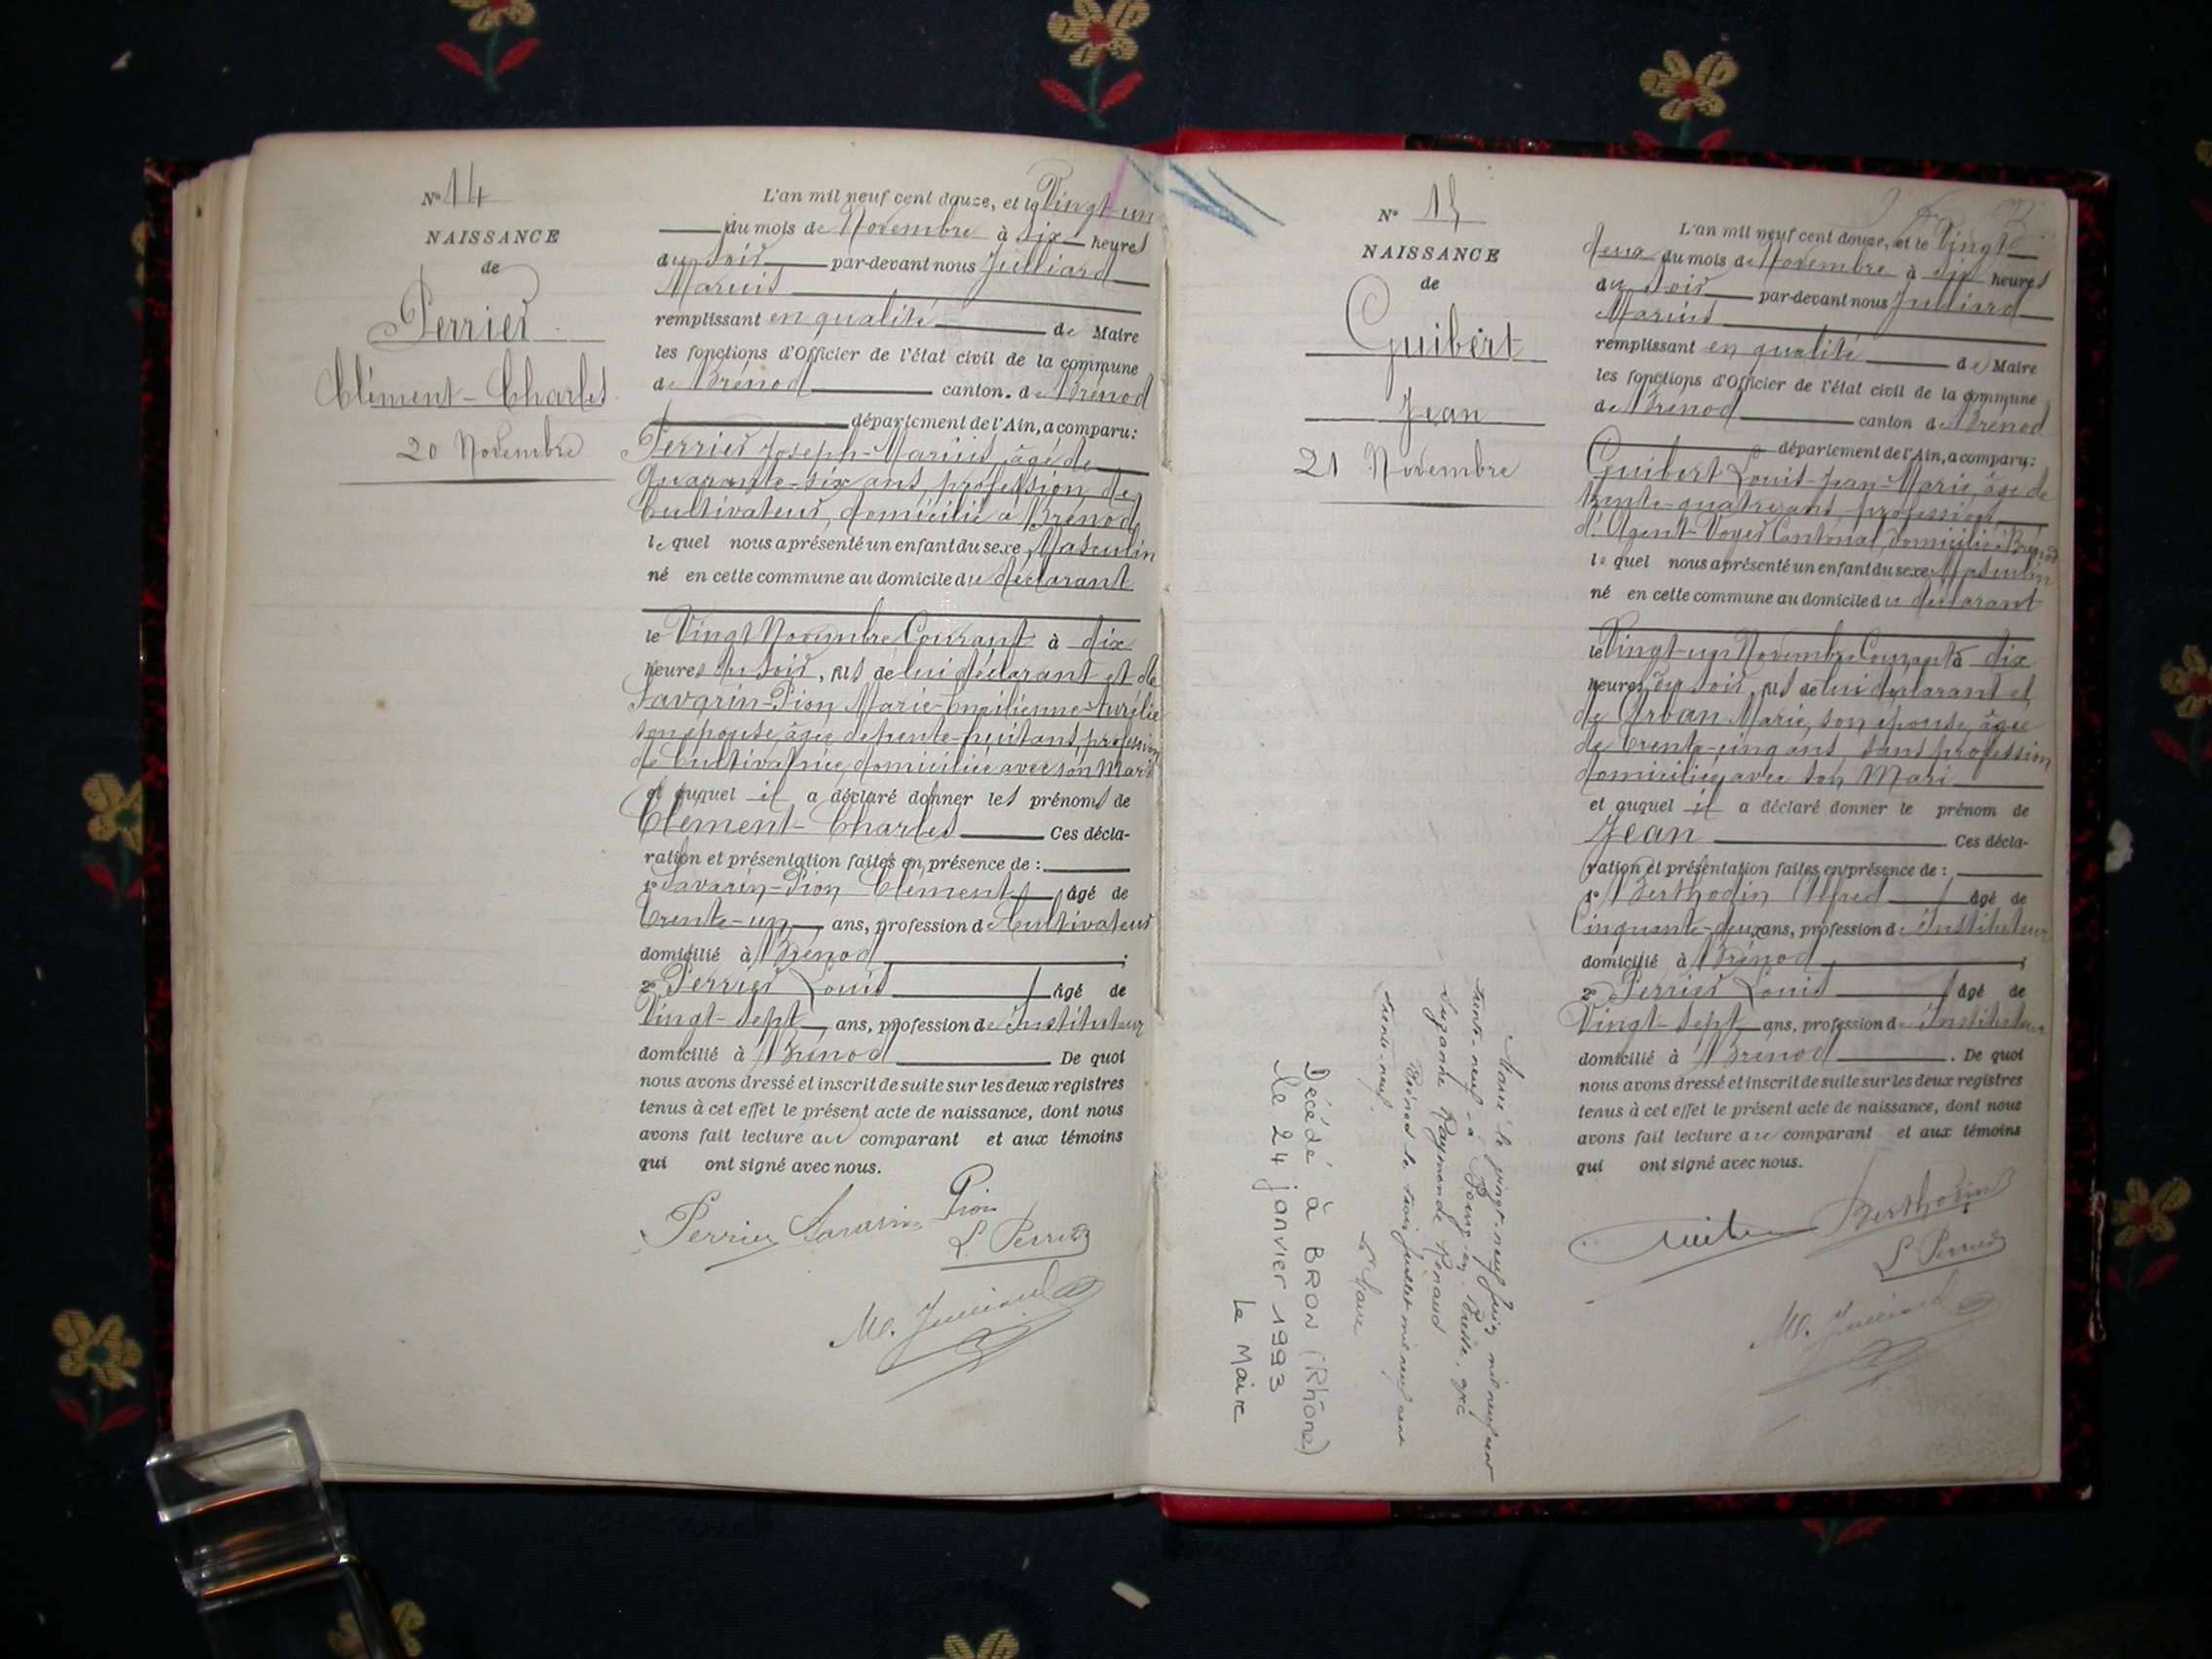 N° 14
NAISSANCE
de
Perrier
Clément-Charles
20 Novembre
L'an mil neuf cent douze, et le Vingt-un
du mois de Novembre à six heures
du soir par-devant nous Julliard
Marius
remplissant en qualité de Maire
les fonctions d'Officier de l'état civil de la commune
de Brénod canton de Brénod
département de l'Ain, a comparu:
Perrier Joseph-Marius, âgé de
quarante-six ans, profession de
Cultivateur, domicilié à Brénod
lequel nous a présenté un enfant du sexe Masculin
né en cette commune au domicile du déclarant
le Vingt Novembre Courant à dix
heures du soir, fils de lui déclarant et de
Savarin-Pion Marie-Emilienne-Aurélie
son épouse, âgée de trente-huit ans, profession
de Cultivatrice, domiciliée avec son Mari
et auquel il a déclaré donner les prénoms de
Clément-Charles Ces décla-
ration et présentation faites en présence de :
1° Savarin-Pion Clément âgé de
trente-un ans, profession de Cultivateur
domicilié à Brénod ;
2° Perrier Louis âgé de
Vingt-sept ans, profession de Instituteur
domicilié à Brénod De quoi
nous avons dressé et inscrit de suite sur les deux registres
tenus à cet effet le présent acte de naissance, dont nous
avons fait lecture au comparant et aux témoins
qui ont signé avec nous.
Perrier Savarin Pion
L. Perrier
M. Julliard
N° 15
NAISSANCE
de
Guibert
Jean
21 Novembre
Marié le vingt-neuf Juin mil neuf cent
trente-neuf à Bourg-en-Bresse, avec
Suzanne Raymonde Renaud
Brénod le trois juillet mil neuf cent
trente-neuf.
Le Maire
Décédé à BRON (Rhône)
le 24 janvier 1993
Le Maire
L'an mil neuf cent douze, et le Vingt
deux du mois de Novembre à six heures
du soir par-devant nous Julliard
Marius
remplissant en qualité de Maire
les fonctions d'Officier de l'état civil de la commune
de Brénod canton de Brénod
département de l'Ain, a comparu:
Guibert Louis-Jean-Marie, âgé de
trente-quatre ans, profession
d'Agent-Voyer Cantonal, domicilié à Brénod
lequel nous a présenté un enfant du sexe Masculin
né en cette commune au domicile du déclarant
le Vingt-un Novembre Courant à dix
heures du soir, fils de lui déclarant et
de Orban Marie, son épouse, âgée
de trente-cinq ans, sans profession
domiciliée avec son Mari
et auquel il a déclaré donner le prénom de
Jean Ces décla-
ration et présentation faites en présence de :
1° Berthodin Alfred âgé de
Cinquante-deux ans, profession de Instituteur
domicilié à Brénod ;
2° Perrier Louis âgé de
Vingt-sept ans, profession de Instituteur
domicilié à Brénod. De quoi
nous avons dressé et inscrit de suite sur les deux registres
tenus à cet effet le présent acte de naissance, dont nous
avons fait lecture au comparant et aux témoins
qui ont signé avec nous.
Berthodin
L. Perrier
M. Julliard